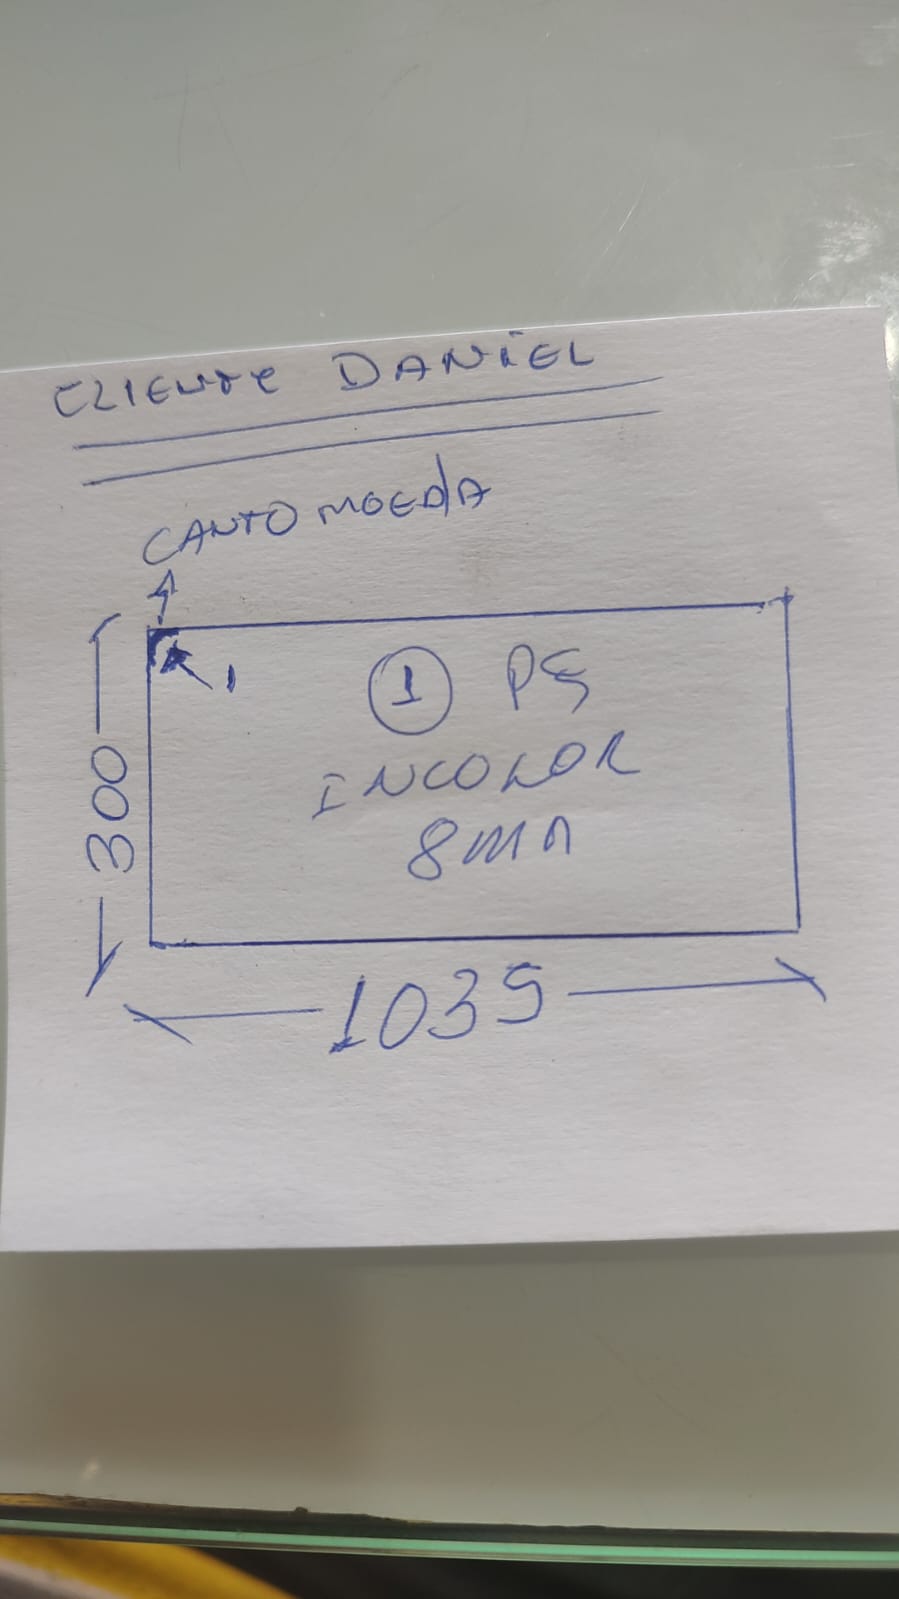 CLIENTE DANIEL
CANTO MOEDA
1
1 PÇ
INCOLOR
8MM
300
1035